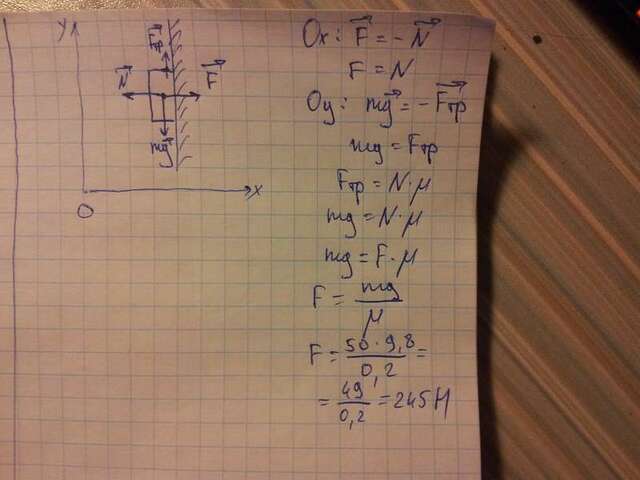 y
Fтр
N
F
mg
x
O
Ox: F = -N
F = N
Oy: mg = -Fтр
mg = Fтр
Fтр = N·μ
mg = N·μ
mg = F·μ
F = mg/μ
F = 50·9,8/0,2 =
= 49/0,2 = 245 Н